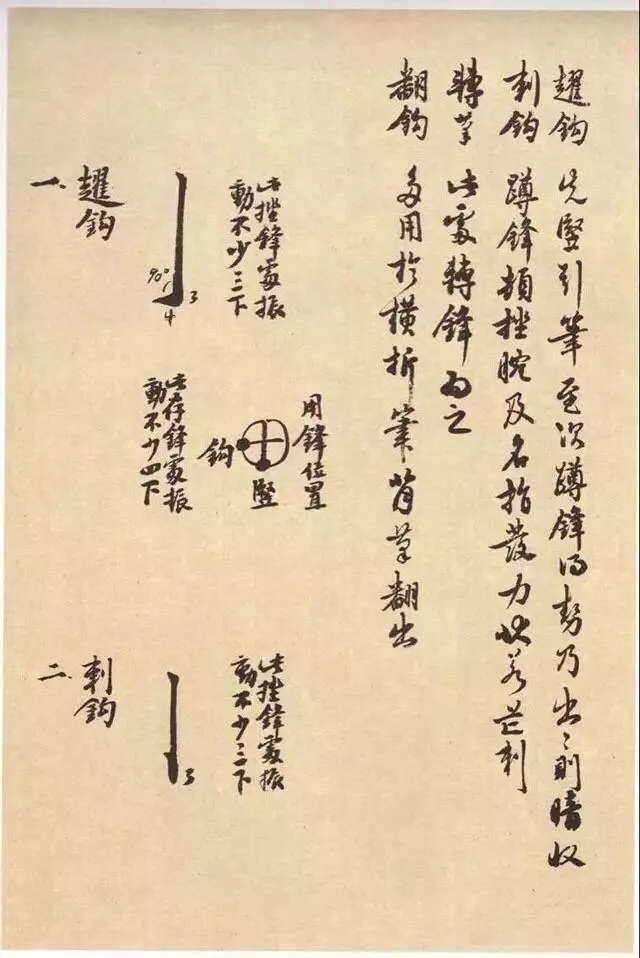 趯鈎 先豎引筆至次蹲鋒得勢乃出ゝ則暗收
刺鈎 蹲鋒頓挫腕及名指發力狀若芒刺
轉筆 此處轉鋒為之
翻鈎 多用於橫折筆背筆翻出
一、趯鈎
90°
3
4
此挫鋒處振
動不少三下
用鋒位置
豎
鈎
此存鋒處振
動不少四下
二、刺鈎
3
此挫鋒處振
動不少三下